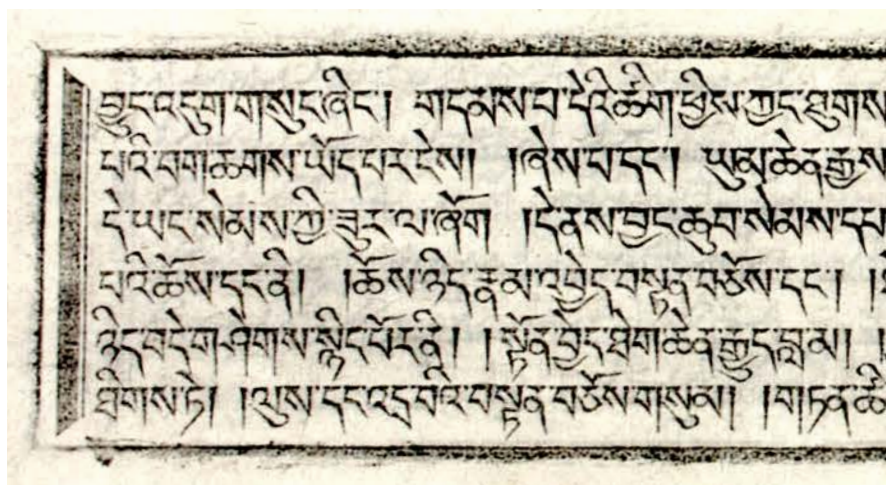 བྱུང་འདུག་གསུང་ཞིང་། གདམས་པ་དེའི་ཚིག་ཕྱིས་ཀྱང་ཐུགས
པའི་བག་ཆགས་ཡོད་པར་ངེས། །ཞེས་པ་དང་། ཡུམ་ཆེན་རྒྱས
དེ་ཡང་སེམས་ཀྱི་ཟུར་ལ་ཞོག །དེ་ནས་བྱང་ཆུབ་སེམས་དཔ
པའི་ཆོས་དང་ནི། །ཆོས་ཉིད་རྣམ་འབྱེད་བསྟན་བཅོས་དང་། །
ཉིད་བདེ་གཤེགས་སྙིང་པོར་ནི། །སྟོན་བྱེད་ཐེག་ཆེན་རྒྱུད་བླམ། །
ཐིགས་ཏེ། །ལུས་དང་འདྲ་བའི་བསྟན་བཅོས་གསུམ། །གཏན་ཚི